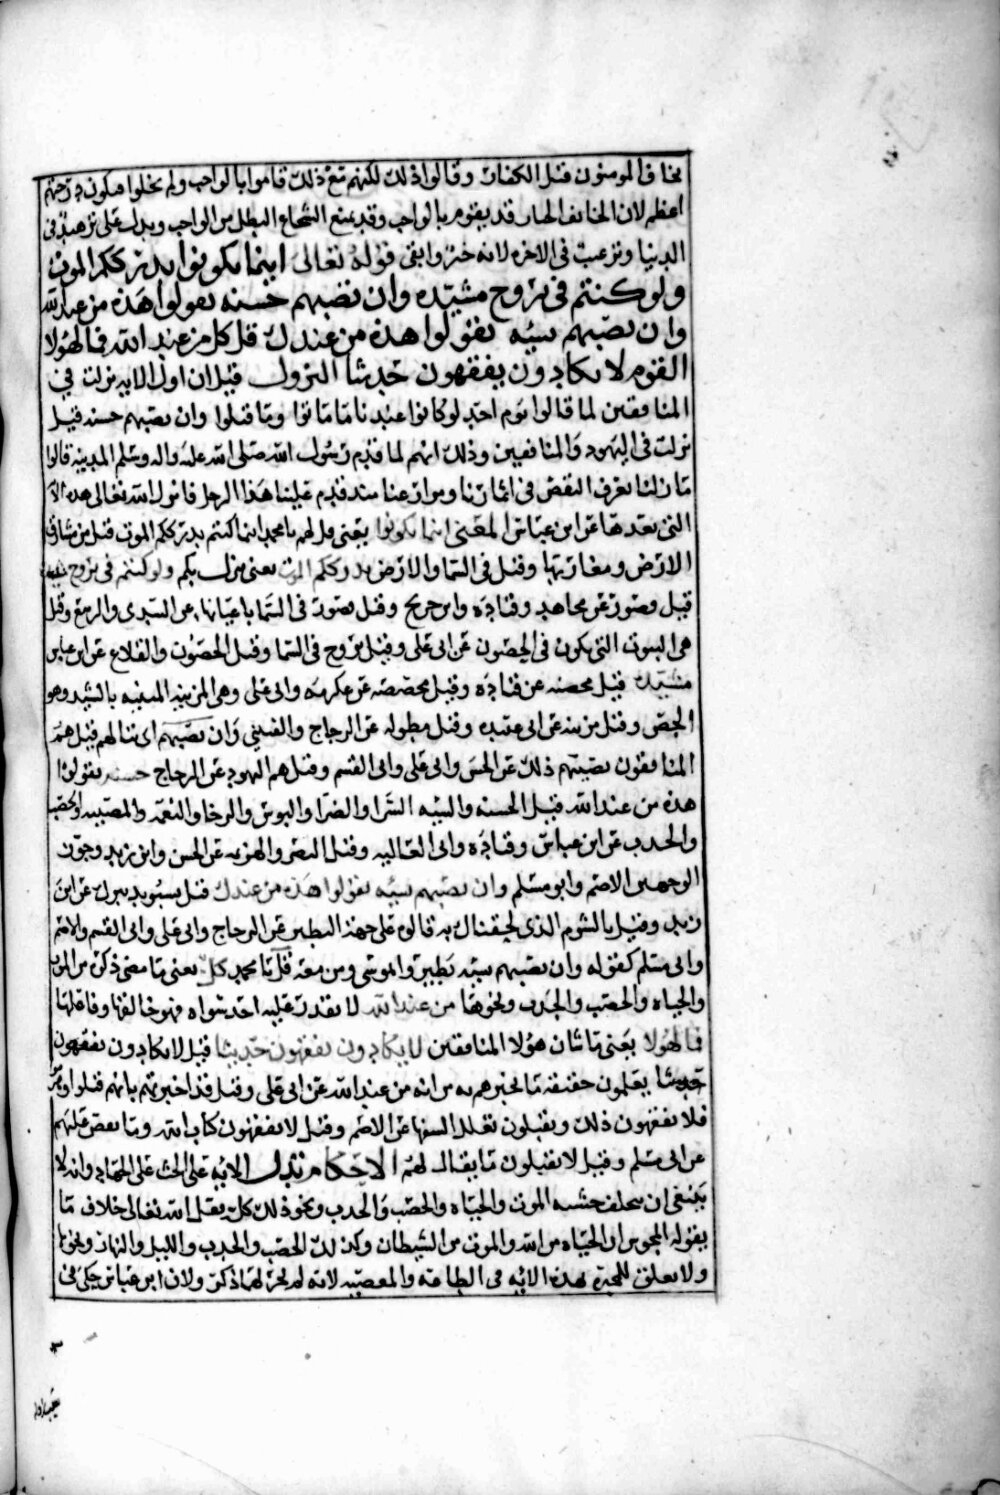 يخاف المومنون قتل الكفار وقالوا ذلك لكنهم مع ذلك قاموا بالواجب ولم يخلوا فيكون درجتهم
اعظم لان الخايف الجبان قد يقوم بالواجب وقد يمنع الشجاع البطل من الواجب ويدل على تزهيد في
الدنيا وترغيب في الاخرة لانه خير وابقى قوله تعالى اينما تكونوا يدرككم الموت
ولو كنتم في بروج مشيدة وان تصبهم حسنه يقولوا هذه من عند الله
وان تصبهم سيئه يقولوا هذه من عندك قل كل من عند الله فمال هولا
القوم لا يكادون يفقهون حديثا النزول قيل ان اول الايه نزلت في
المنافقين لما قالوا يوم احد لو كانوا عندنا ما ماتوا وما قتلوا وان تصبهم حسنه قيل
نزلت في اليهود والمنافقين وذلك انهم لما قدم رسول الله صلى الله عليه واله وسلم المدينه قالوا
ما زلنا نعرف النقص في اثمارنا ومزارعنا منذ قدم علينا هذا الرجل فانزل الله تعالى هذه الايه
التي بعدها عن ابن عباس المعنى اينما تكونوا يعني قل لهم يا محمد اينما كنتم يدرككم الموت قيل من مشارق
الارض ومغاربها وقيل في السما والارض يدرككم الموت يعني ينزل بكم ولو كنتم في بروج
قيل قصور عن مجاهد وقتاده وابن جريج وقيل قصور في السما باعيانها عن السدي والربيع وقيل
هي البيوت التي يكون في الحصون عن ابي علي وقيل بروج في السما وقيل الحصون والقلاع عن ابن عباس
مشيدة قيل محصنه عن قتاده وقيل مجصصه عن عكرمه وابي علي وهي المزينه المبنيه بالشيد وهو
الجص وقيل مزينه عن ابي عبيده وقيل مطوله عن الزجاج والقتيبي وان تصبهم اي تنالهم قيل هم
المنافقون يصيبهم ذلك عن الحسن وابي علي وابي القسم وقيل هم اليهود عن الزجاج حسنه يقولوا
هذه من عند الله قيل الحسنه والسيئه السرا والضرا والبوس والرخا والنعمه والمصيبه والخصب
والجدب عن ابن عباس وقتاده وابي العاليه وقيل النصر والهزيمه عن الحسن وابن زيد وجوز
الوجهين الاصم وابو مسلم وان تصبهم سيئه يقولوا هذه من عندك قيل بسو تدبيرك عن ابن
زيد وقيل بالشوم الذي لحقنا بك قالوه على جهة التطير عن الزجاج وابي علي وابي القسم والاصم
وابي مسلم كقوله وان تصبهم سيئه يطيروا بموسى ومن معه قل يا محمد كل يعني ما مضى ذكره من الموت
والحياه والخصب والجدب ونحوها من عند الله لا يقدر عليه احد سواه فهو خالقها وفاعلها
فمال هولا يعني ما شان هولا المنافقين لا يكادون يفقهون حديثا قيل لا يكادون يفقهون
حديثا يعلمون حقيقة ما تخبرهم به من انه من عند الله عن ابي علي وقيل قد اخبرتهم بانهم قتلوا
فلا يفقهون ذلك ويقبلون تقليد السفها عن الاصم وقيل لا يفقهون كتاب الله وما يقص عليهم
عن ابي مسلم وقيل لا يقبلون ما يقال لهم الاحكام تدل الايه على الحث على الجهاد وانه لا
ينبغي ان يتخلف خشيه الموت والحياه والخصب والجدب ونحو ذلك كل بفعل الله تعالى خلاف ما
يقوله المجوس ان الحياه من الله والموت من الشيطان وكذلك الخصب والجدب والليل والنهار ونحوها
ولا تعلق للمجبره بهذه الايه في الطاعه والمعصيه لانه لم يجر لهما ذكر ولان ابن عباس حكى في